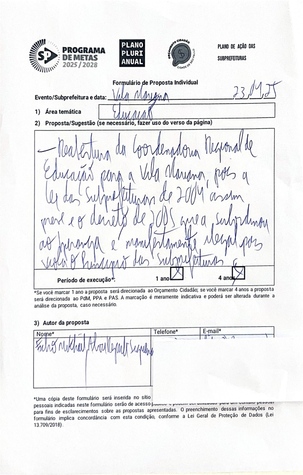 PROGRAMA
DE METAS
2025 / 2028
PLANO
PLURI
ANUAL
PLANO DE AÇÃO DAS
SUBPREFEITURAS
Formulário de Proposta Individual
Evento/Subprefeitura e data: Vila Mariana
1) Área temática Educação
2) Proposta/Sugestão (se necessário, fazer uso do verso da página)
- Reabertura da Coordenadoria Regional de
Educação para a Vila Mariana, pois a
lei das Subprefeituras de 2004 assim
prevê e o decreto de 2005 que a
ao e manifestamente ilegal pois
das subprefeituras
Período de execução* 1 ano 4 anos
*Se você marcar 1 ano a proposta será direcionada ao Orçamento Cidadão; se você marcar 4 anos a proposta
será direcionada ao PdM, PPA e PAS. A marcação é meramente indicativa e poderá ser alterada durante a
análise da proposta, caso necessário.
3) Autor da proposta
Nome* Telefone* E-mail*
*Uma cópia deste formulário será inserida no sítio
pessoais indicadas neste formulário serão de acesso
para fins de esclarecimentos sobre as propostas apresentadas. O preenchimento dessas informações no
formulário implica concordância com esta condição, conforme a Lei Geral de Proteção de Dados (Lei
13.709/2018)